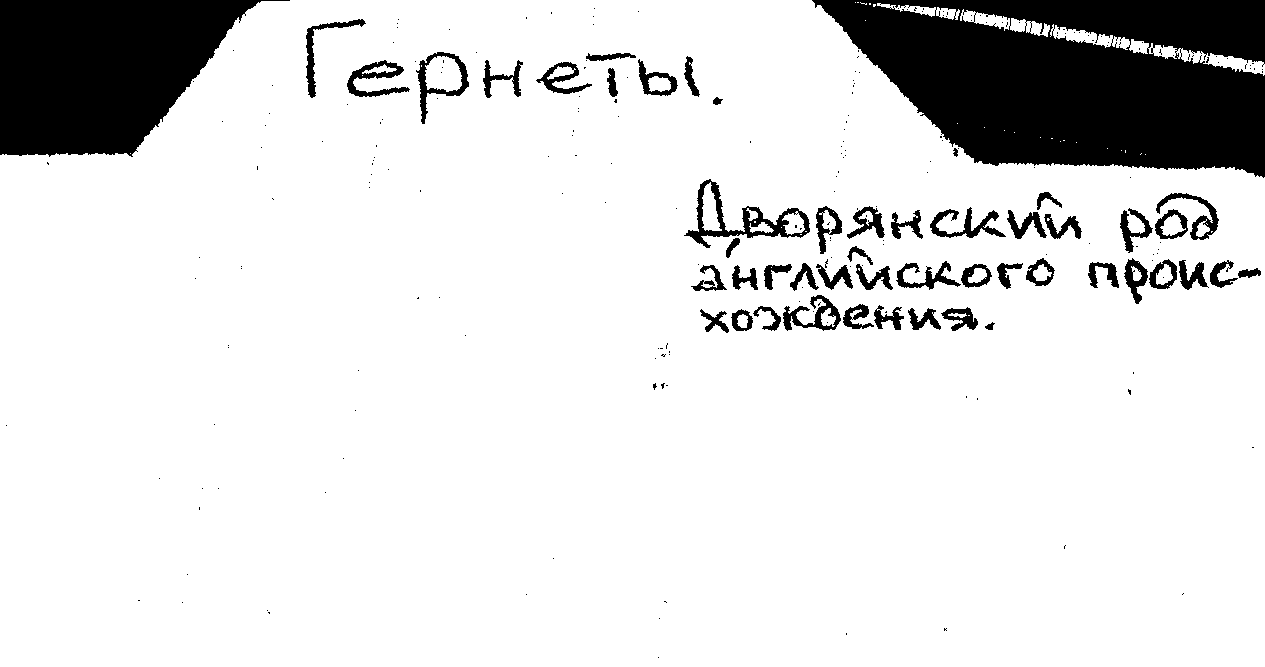 Гернеты.
Дворянский род
английского проис-
хождения.